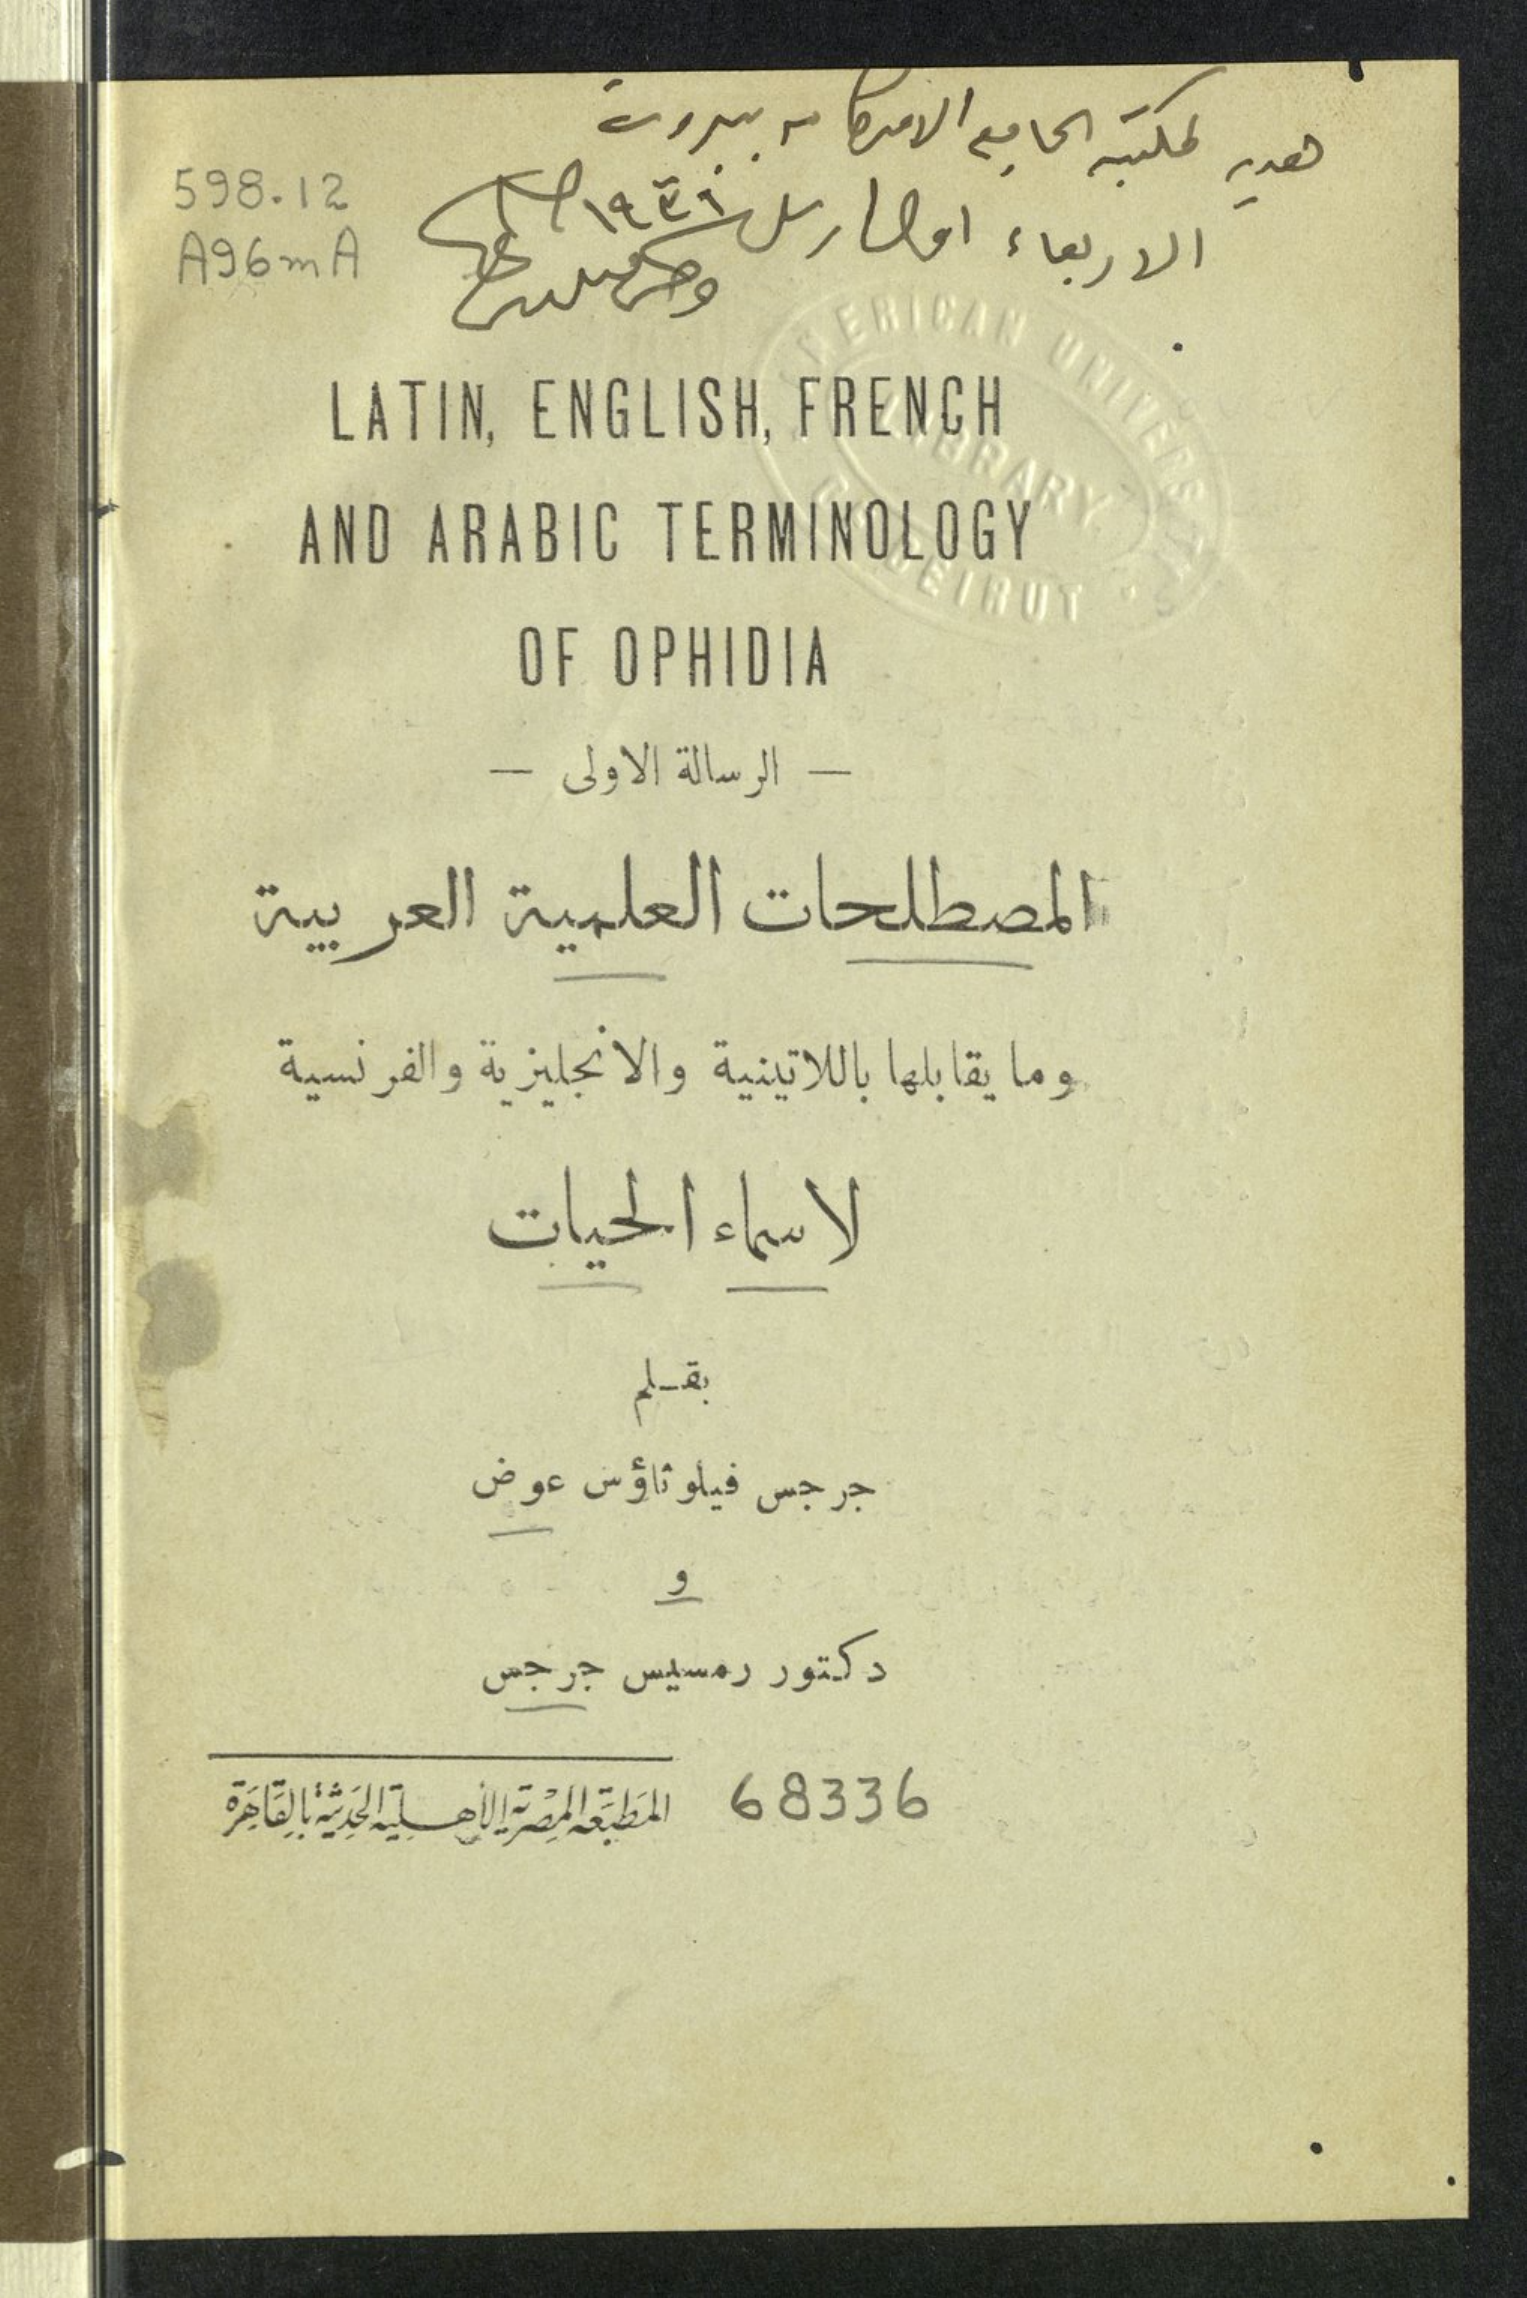 هديه لمكتبه الجامعه الامريكانيه ببيروت
598.12
الاربعاء اول ١٩٣٦
A96mA
AMERICAN UNIVERSITY
LIBRARY
OF BEIRUT
LATIN, ENGLISH, FRENCH
AND ARABIC TERMINOLOGY
OF OPHIDIA
— الرسالة الاولى —
المصطلحات العلمية العربية
وما يقابلها باللاتينية والانجليزية والفرنسية
لاسماء الحيات
بقـلم
جرجس فيلوثاؤس عوض
و
دكتور رمسيس جرجس
68336
المَطبَعَه المِصْريَة الأهـلية الحَدِيثَة بالقَاهِرَة